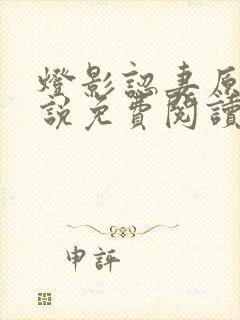 燈影認妻原
說免費閱讀
申評